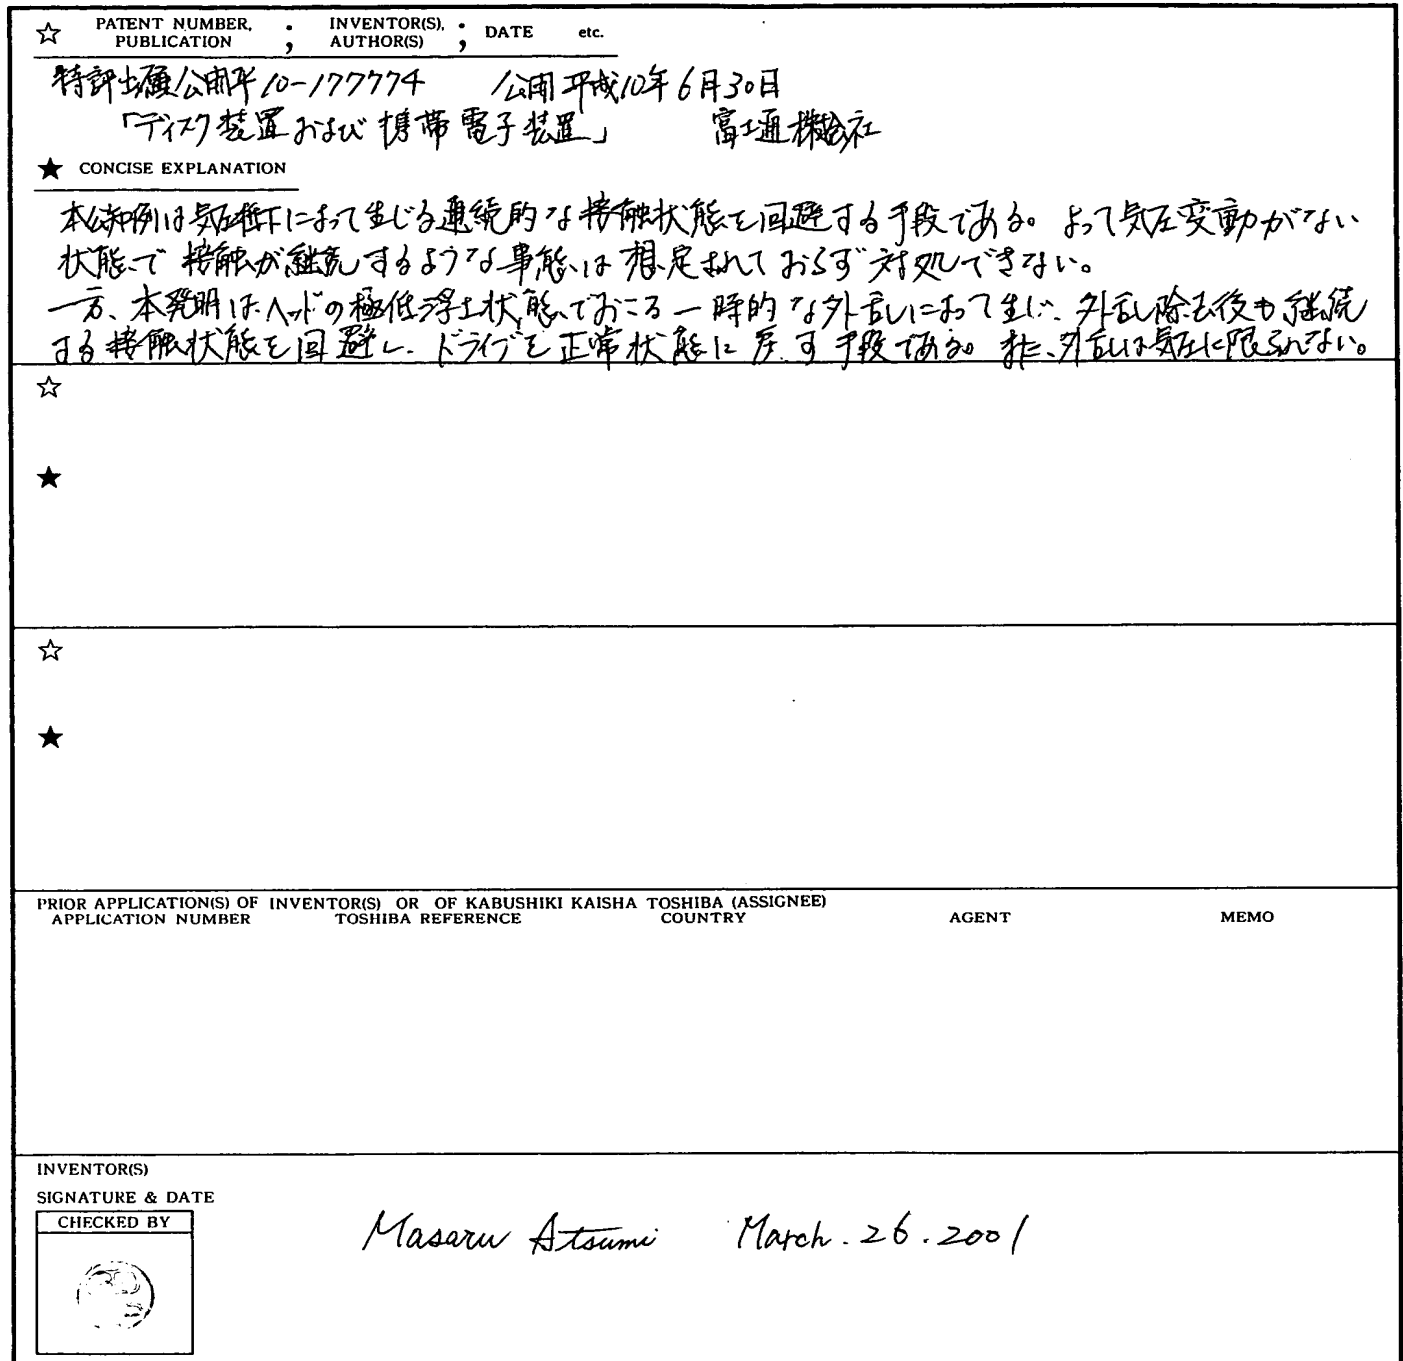 ☆ PATENT NUMBER, PUBLICATION ; INVENTOR(S), AUTHOR(S) ; DATE etc.
特許出願公開平10-177774 公開平成10年6月30日
「ディスク装置および携帯電子装置」 富士通株式会社
★ CONCISE EXPLANATION
本公知例は気圧低下によって生じる連続的な接触状態を回避する手段である。よって気圧変動がない
状態で接触が継続するような事態は想定されておらず対処できない。
一方、本発明はヘッドの極低浮上状態でおこる一時的な外乱によって生じ、外乱除去後も継続
する接触状態を回避し、ドライブを正常状態に戻す手段である。また、外乱は気圧に限られない。
☆
★
☆
★
PRIOR APPLICATION(S) OF INVENTOR(S) OR OF KABUSHIKI KAISHA TOSHIBA (ASSIGNEE)
APPLICATION NUMBER TOSHIBA REFERENCE COUNTRY AGENT MEMO
INVENTOR(S)
SIGNATURE & DATE
CHECKED BY
Masaru Atsumi March. 26. 2001